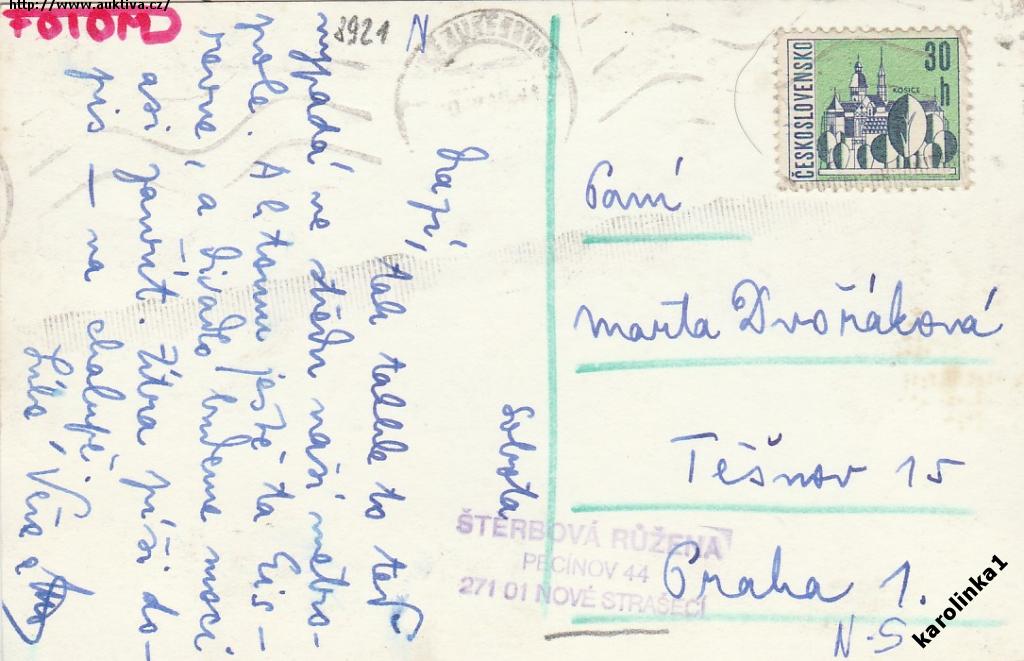 http://www.auktiva.cz/
FOTOM
8921 N
ČESKOSLOVENSKO
30
h
KOŠICE
sobota
tak takhle to teď
vypadá ve středu naší metro-
pole. A k tomu ještě ta Eis-
revue, a divadlo budeme moci
asi zavřít. Zítra příší do-
pis – na chalupě.
Líbá, Věra a
Paní
Marta Dvořáková
Těšnov 15
Praha 1.
N-S
ŠTERBOVÁ RŮŽENA
PECÍNOV 44
271 01 NOVÉ STRAŠECÍ
karolinka1